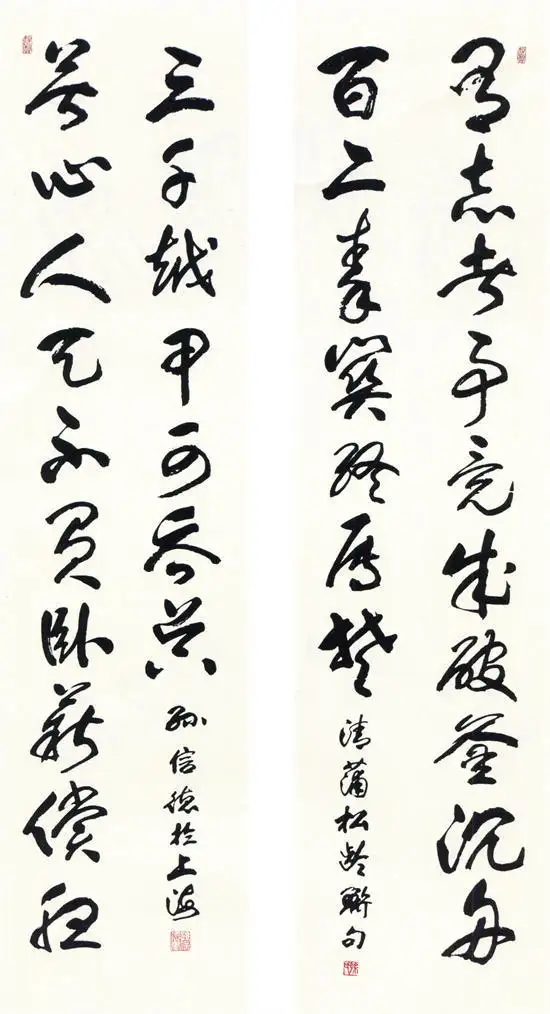 有志者事竟成破釜沉舟
百二秦關終属楚
清蒲松齡聯句
苦心人天不負卧薪償胆
三千越甲可吞吴
孫信德於上海